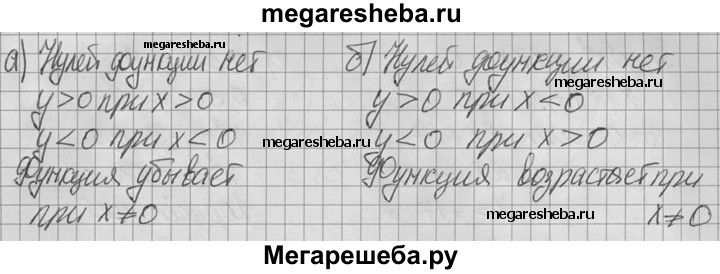 megaresheba.ru
а) Нулей функции нет
y>0 при x>0
y<0 при x<0
Функция убывает
при x≠0
б) Нулей функции нет
y>0 при x<0
y<0 при x>0
Функция возрастает при
x≠0
megaresheba.ru
megaresheba.ru
megaresheba.ru
megaresheba.ru
megaresheba.ru
Мегарешеба.ру